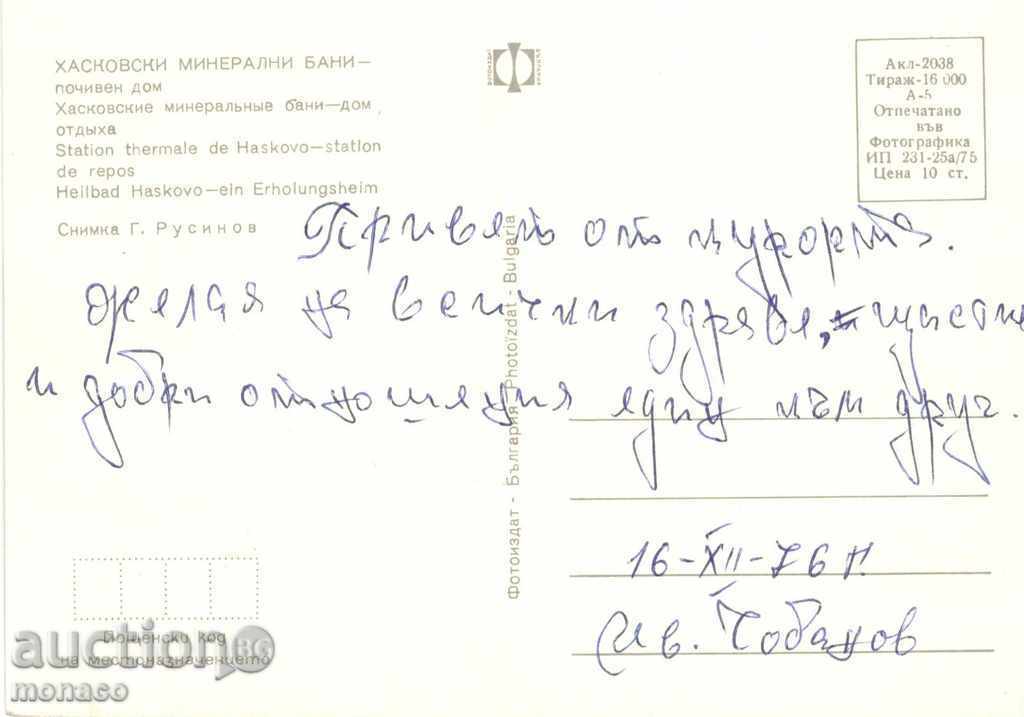 ХАСКОВСКИ МИНЕРАЛНИ БАНИ—
почивен дом
Хасковские минеральные бани—дом
отдыха
Station thermale de Haskovo—station
de repos
Heilbad Haskovo—ein Erholungsheim
Снимка Г. Русинов
фотоиздат
Акл-2038
Тираж-16 000
А-5
Отпечатано
във
Фотографика
ИП 231-25а/75
Цена 10 ст.
Привет от курорта.
Желая на всички здраве, щастие
и добри отношения един към друг.
16-XII-76 г.
Ив. Чобанов
Фотоиздат - България · Photoizdat - Bulgaria
Пощенски код
на местоназначението
auction.BG
monaco